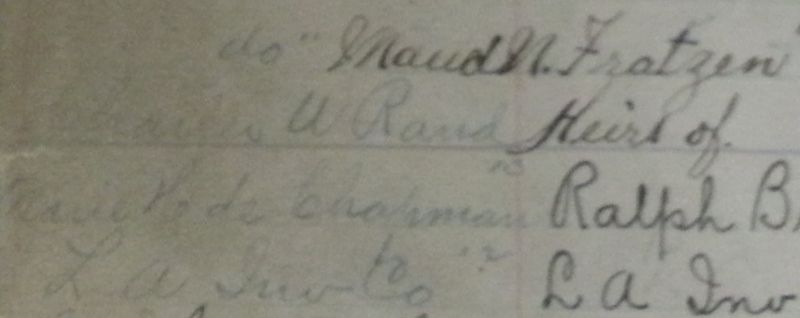 do " Maud N. Fratzen
Charles W Rand Heirs of.
H de Chapman Ralph B.
L A Inv Co L A Inv